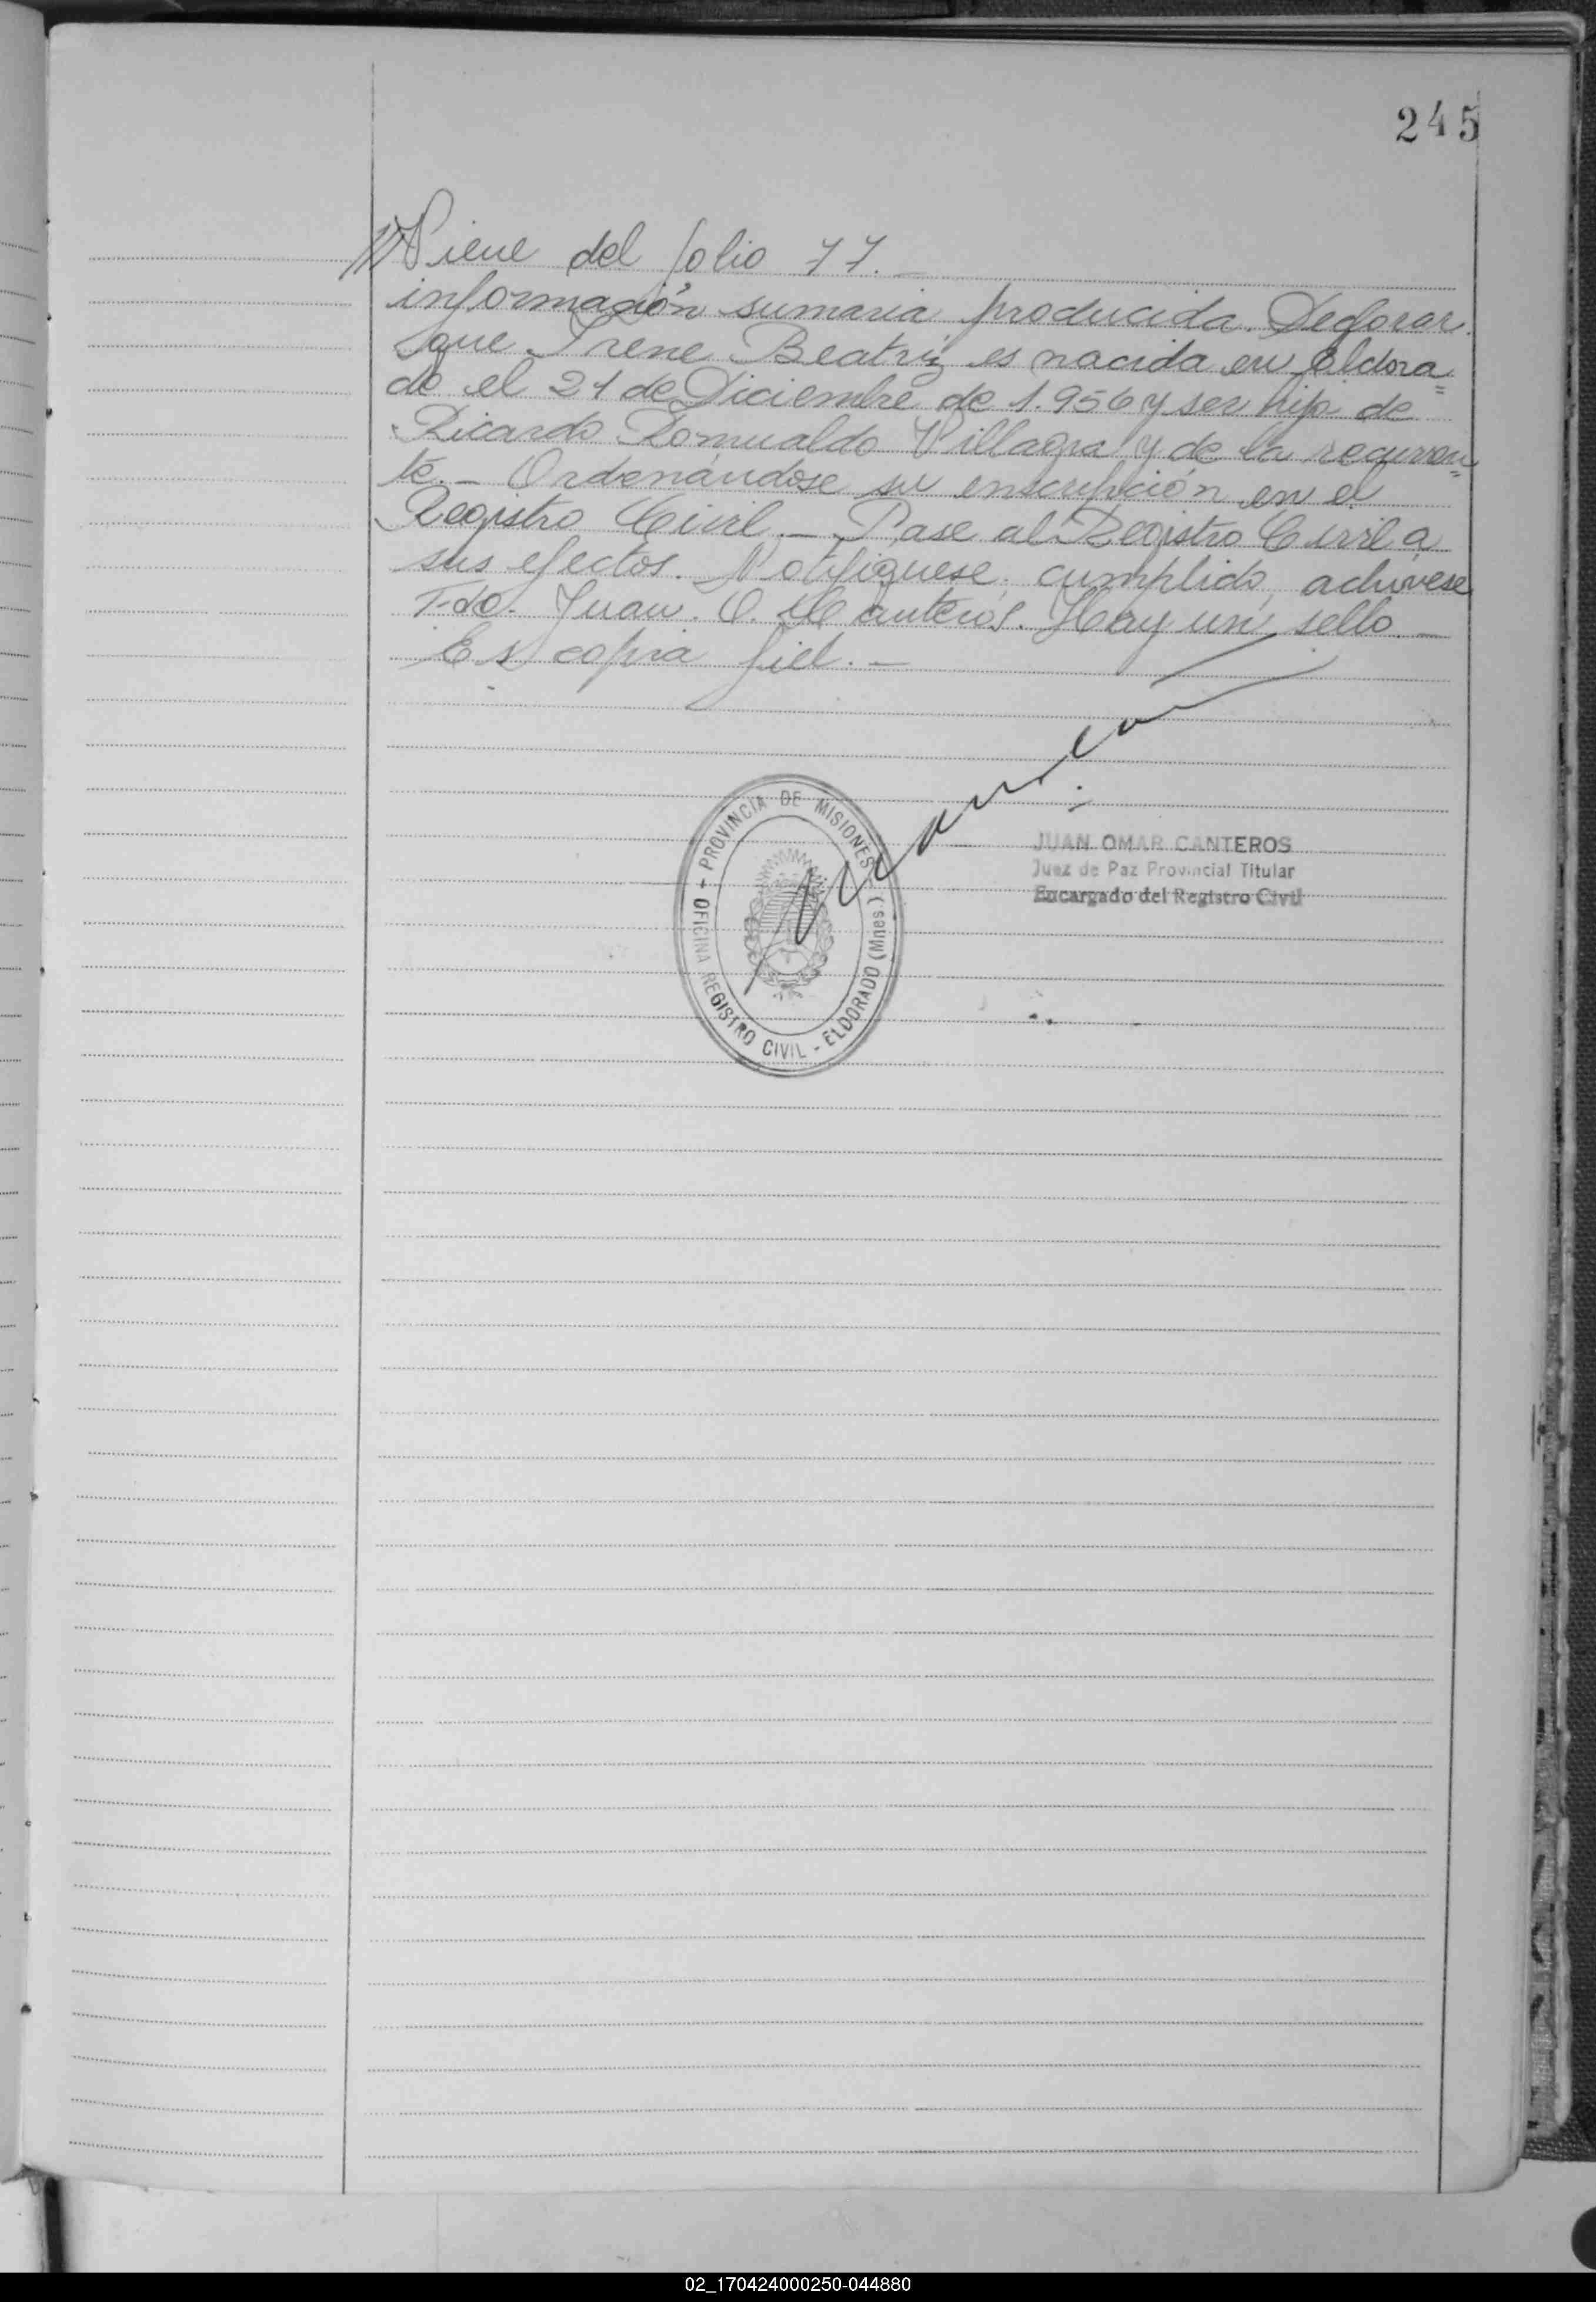 245
Viene del folio 77.-
información sumaria producida. Declarar
que Irene Beatriz es nacida en Eldora=
do el 21 de Diciembre de 1.956 y ser hija de
Ricardo Romualdo Villagra y de la recurren=
te.- Ordenándose su inscripción en el
Registro Civil.- Pase al Registro Civil a
sus efectos. Notifíquese, cumplido, achívese
Fdo. Juan. O. Canteros. Hay un sello.-
Es copia fiel.-
PROVINCIA DE MISIONES
OFICINA REGISTRO CIVIL - ELDORADO (Mnes.)
JUAN OMAR CANTEROS
Juez de Paz Provincial Titular
Encargado del Registro Civil
02_170424000250-044880